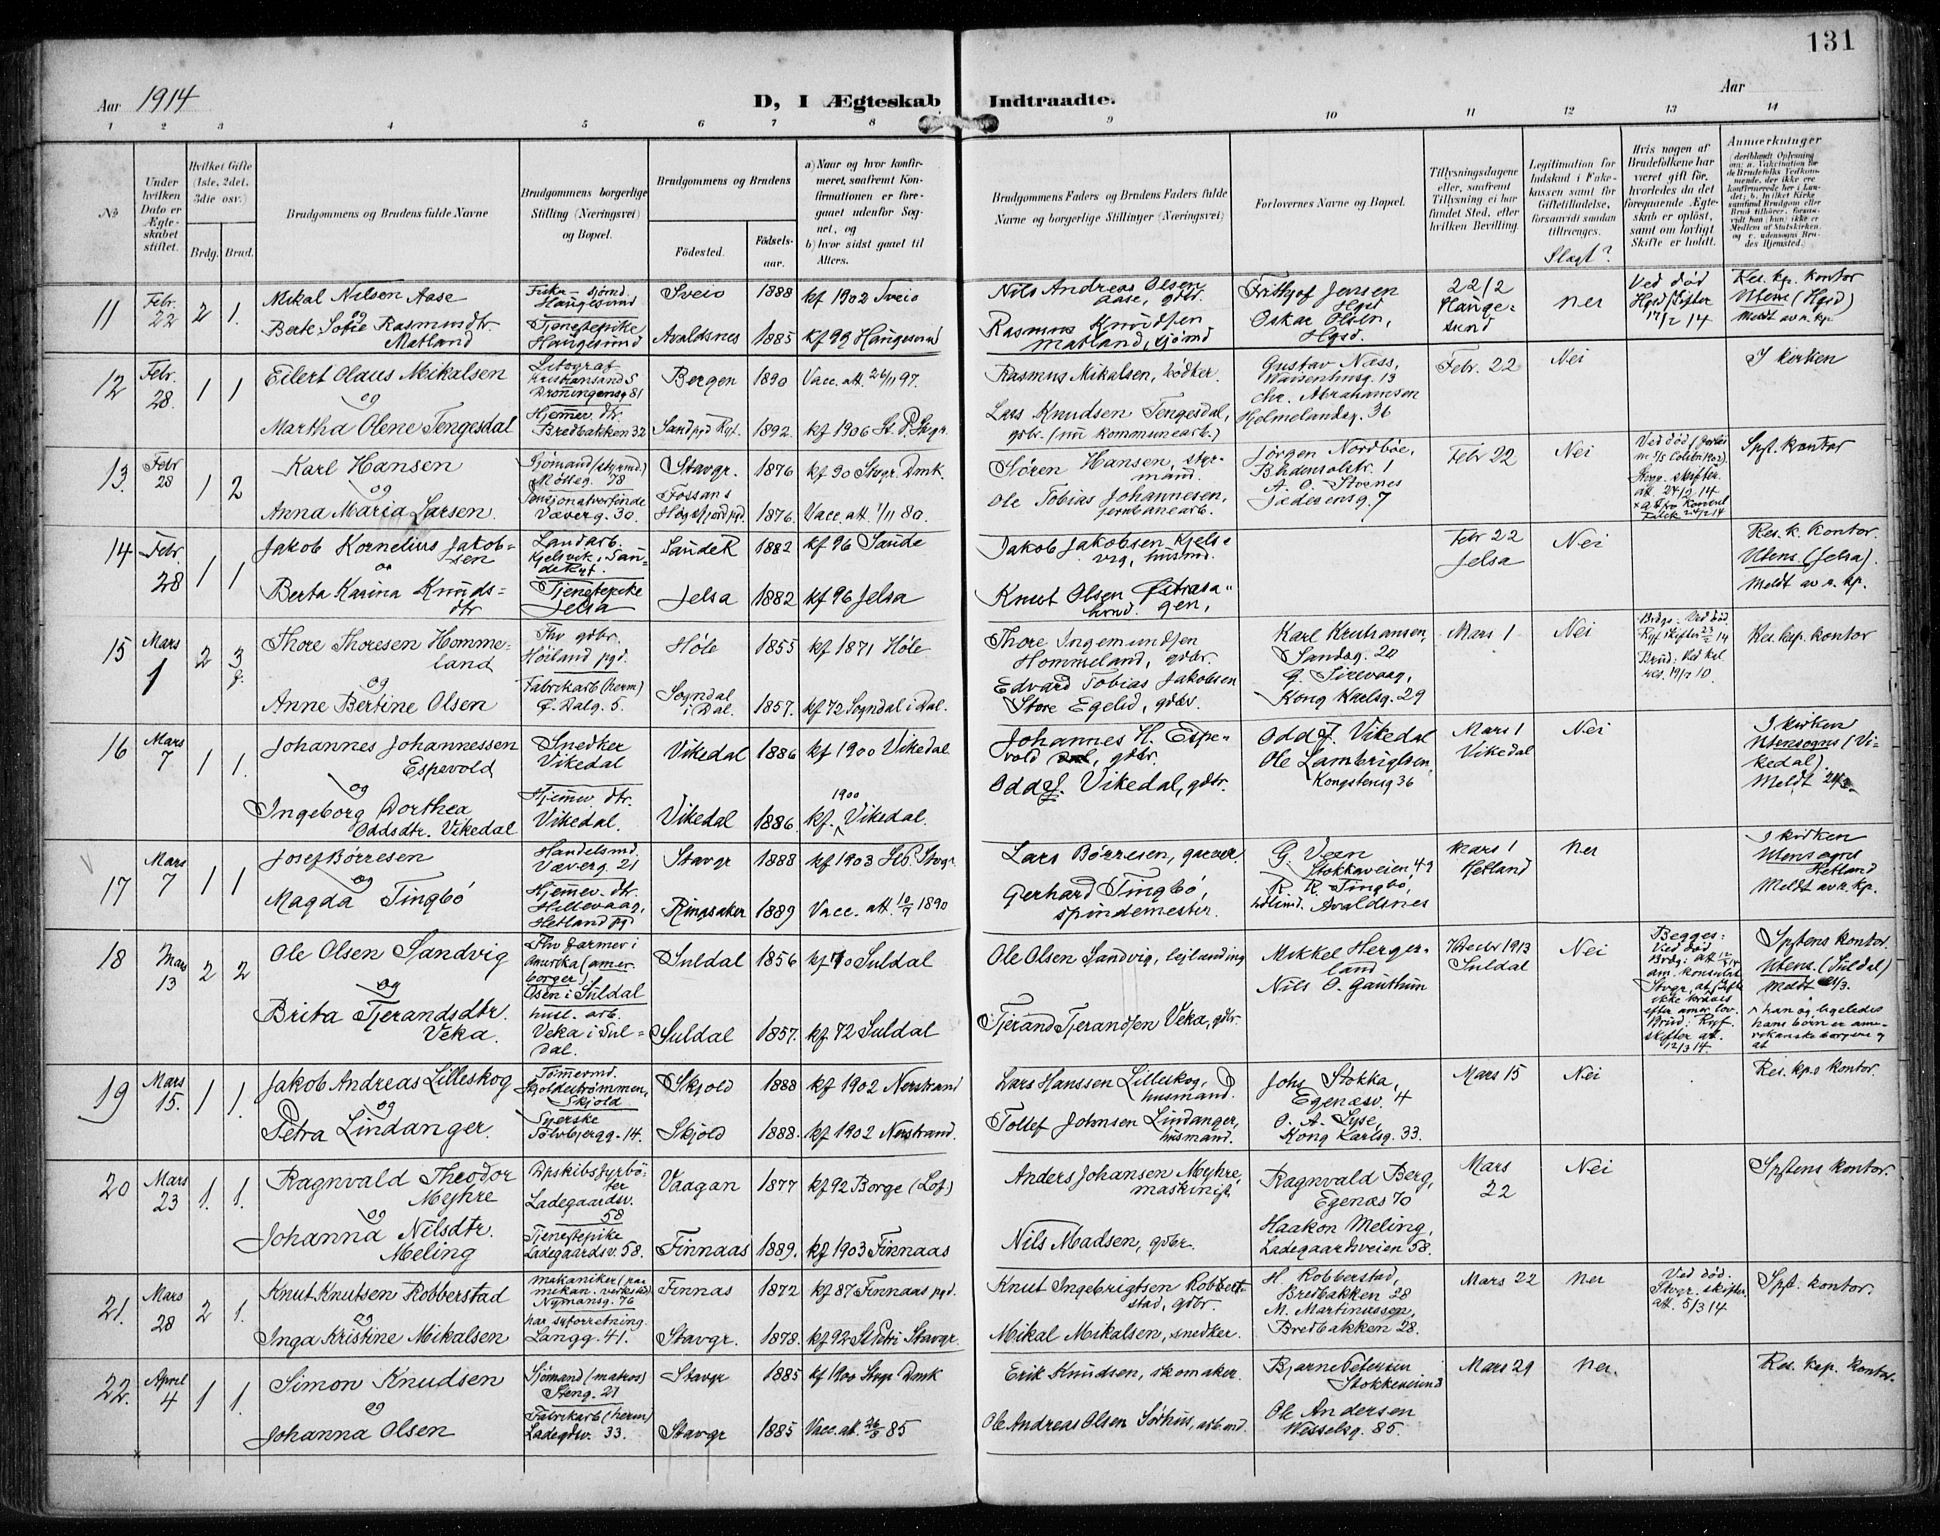 131
Aar 1914
D, I Ægteskab Indtraadte.
Aar
1 2 3 4 5 6 7 8 9 10 11 12 13 14
No
Under hvilken Dato er Ægteskabet stiftet.
Hvilket Gifte (1ste, 2det, 3die osv.)
Brdg. Brud.
Brudgommens og Brudens fulde Navne
Brudgommens borgerlige Stilling (Næringsvei) og Bopæl.
Brudgommens og Brudens
Födested.
Födselsaar.
a) Naar og hvor konfirmeret, saafremt Konfirmationen er foregaaet udenfor Sognet, og
b) hvor sidst gaaet til Alters.
Brudgommens Faders og Brudens Faders fulde Navne og borgerlige Stillinger (Næringsvei)
Forlovernes Navne og Bopæl.
Tillysningsdagene eller, saafremt Tillysning ei har fundet Sted, efter hvilken Bevilling.
Legitimation for Indskud i Enkekassen samt for Giftetilladelse, forsaavidt saadan tiltrænges.
Slægt?
Hvis nogen af Brudefolkene har været gift før, hvorledes da det foregaaende Ægteskab er oplöst, samt om lovligt Skifte er holdt.
Anmærkninger
11 Febr. 22 2 1.
Mikal Nilsen Aase
og
Berte Sofie Rasmusdtr. Matland
Haugesund
Tjenestepike Haugesund
Sveio 1888 kf 1902 Sveio
Avaldsnes 1885 kf 99 Haugesund
Nils Andreas Olsen Aase, gdbr.
Rasmus Knudsen Matland, sjömd
Frithjof Jensen Hgsd
Oskar Olsen, Hgsd.
22/2 Haugesund
nei
Ved död Hgsd skifter 17/2 14
Res. kp. kontor
Utens (Hgsd)
Meldt av r. kp.
12 Febr. 28. 1 1
Eilert Olaus Mikalsen
og
Martha Olene Tengesdal
Litograf Kristiansand S Dronningensg 81
Hjemmev. dtr. Bredbakken 32
Bergen 1890 Vacc. att. 26/11 97.
Sand pgd Ryf. 1892. kf 1906 St. P. Stvgr.
Rasmus Mikalsen, bödker.
Lars Knudsen Tengesdal, gdbr. (nu kommunearb.)
Gustav Næss, Waisenhusg. 13
Chr. Abrahamson Hjelmelandsg. 36
Febr. 22
Nei
I kirken
13. Febr 28 1 2
Karl Hansen
og
Anna Maria Larsen.
Sjömand (styrmd.) Mölleg. 78
Væverg. 30.
Stavgr. 1876 kf 90 Stvgr. Dmk
Fossans Högsfjord pgd. 1876. Vacc. att. 1/11 80.
Sören Hansen, styrmand.
Ole Tobias Johannesen, jernbanearb.
Jörgen Nordböe, 1
A. O. Stornes Jæderensg. 7
Febr 22
Nei
Spr. kontor
14 Febr. 28 1 1
Jakob Kornelius Jakobsen
og
Berta Karina Knudsdtr
Landarb. Kjelsvik, Saude Ryf.
Tjenestepike Jelsa
Saude R 1882 kf 96 Saude
Jelsa 1882 kf 96 Jelsa
Jakob Jakobsen Kjelsvig, husmd.
Knut Olsen Östrasagen,
Febr 22 Jelsa
Nei
Res. k. kontor
Utens (Jelsa).
Meldt av r. kp.
15 Mars 1 2 3 g.
Thore Thoresen Hommeland
og
Anne Bertine Olsen
Fhv gdbr. Höiland pgd.
Fabrikarb (herm) Ö. Dalg. 5.
Höle 1855 kf 1871 Höle
Sogndal i Dal. 1857. kf 72 Sogndal i Dal.
Thore Ingemundsen Hommeland, gdbr.
Edvard Tobias Jakobsen Store Egelid, gdbr.
Karl Kristiansen, Sandsg. 20
G. Sirevaag, Kong Karlsg. 29
Mars 1
Nei
Res. kap. kontor
16 Mars 7 1 1.
Johannes Johannessen Espevold
og
Ingeborg Dorthea Oddsdtr. Vikedal
Snedker Vikedal
Hjemmev. dtr. Vikedal.
Vikedal 1886 kf 1900 Vikedal
Vikedal 1886. kf. 1900 Vikedal.
Johannes H. Espevold, gdbr.
Odd J. Vikedal, gdbr.
Odd J. Vikedal
Ole Lambrigtsen, Kongstensg 36
Mars 1 Vikedal
Nei
I kirken
Utensogns (Vikedal).
Meldt
17 Mars 7 1 1
Josef Börresen
og
Magda Tingbö
Handelsmd. Væverg. 21
Hjemmev. dtr. Hillevaag, Hetland pgd
Stavgr 1888 kf 1903 St. P. Stvgr.
Ringsaker 1889 Vacc. att. 10/7 1890
Lars Börresen, garver.
Gerhard Tingbö, spindemester.
G. Veen Stokkaveien 49
R. K. Tingbö, Avaldsnes
Mars 1 Hetland
nei
I kirken
Utensogns Hetland
Meldt av r. kp.
18 Mars 13 2 2
Ole Olsen Sandvig
og
Brita Tjerandsdtr. Veka.
Fhv farmer i Amerika (amer borger) Osen i Suldal
husl. arb. Veka i Suldal.
Suldal 1856 kf 70 Suldal
Suldal 1857. kf 72 Suldal
Ole Olsen Sandvig, leilænding
Tjerand Tjerandsen Veka, gdbr.
Mikkel Hergerland
Nils O. Gauthun
7 Decbr 1913 Suldal
Nei
Begges: Ved död
Brdg: att 12/3 14 am. konsulat Stvgr, at skifte ikke kræves efter amer lov.
Brud: Ryf. skifter att. 12/3 14
Spstens kontor.
Utens. (Suldal)
Meldt
x han og ligeledes hans börn er amerikanske borgere
19 Mars 15. 1 1.
Jakob Andreas Lilleskog
og
Petra Lindanger.
Tömmermd. Skjoldestrømmen, Skjold
Syerske Tolvbjergg. 14.
Skjold 1888 kf 1902 Nerstrand
Skjold 1888. kf 1902 Nerstrand.
Lars Hanssen Lilleskog, husmand.
Tollef Johnsen Lindanger, husmand.
Johs Stokka, Egenæsv. 4
O. A. Lyse, Kong Karlsg. 33.
Mars 15
Nei
Res. kp.s kontor.
20 Mars 23 1. 1.
Ragnvald Theodor Meyhre
og
Johanna Nilsdtr. Meling
Dpskibsfyrböter Ladegaardsv. 58
Tjenestepike Ladegaardsv. 58.
Vaagan 1877 kf 92 Borge (Lof)
Finnaas 1889. kf 1903 Finnaas
Anders Johansen Meyhre, maskinist.
Nils Madsen, gdbr.
Ragnvald Berg, Egenæs 70
Haakon Meling, Ladegaardsveien 58.
Mars 22
Nei
Spstens kontor.
21. Mars 28 2 1.
Knut Knutsen Robberstad
og
Inga Kristine Mikalsen
Mekaniker (paa mekan. verksted) Nymansg. 76
har syforretning. Langg. 41.
Finnas 1872 kf 87 Finnaas pgd.
Stavgr. 1878. kf 92 St Petri Stavgr.
Knut Ingebrigtsen Robberstad, gdbr.
Mikal Mikalsen, snedker.
H. Robberstad, Bredbakken 28
M. Martinussen, Bredbakken 28.
Mars 22
nei
Ved död. Stvgr. skifter att. 5/3 14
Spst. kontor.
22. April 4 1 1.
Simon Knudsen
og
Johanna Olsen
Sjömand (matros) Steng. 21
Fabrikarb (herm) Ladegdsv. 33.
Stavgr 1885 kf 1900 Stvgr Dmk
Stavgr 1885 Vacc. att. 26/8 85
Erik Knudsen, skomaker.
Ole Andreas Olsen Sörhus, arb.md.
Bjarne Petersen Stokkeveien
Ole Andersen Wesselsg. 85.
Mars 29
nei.
Res. kap. kontor.